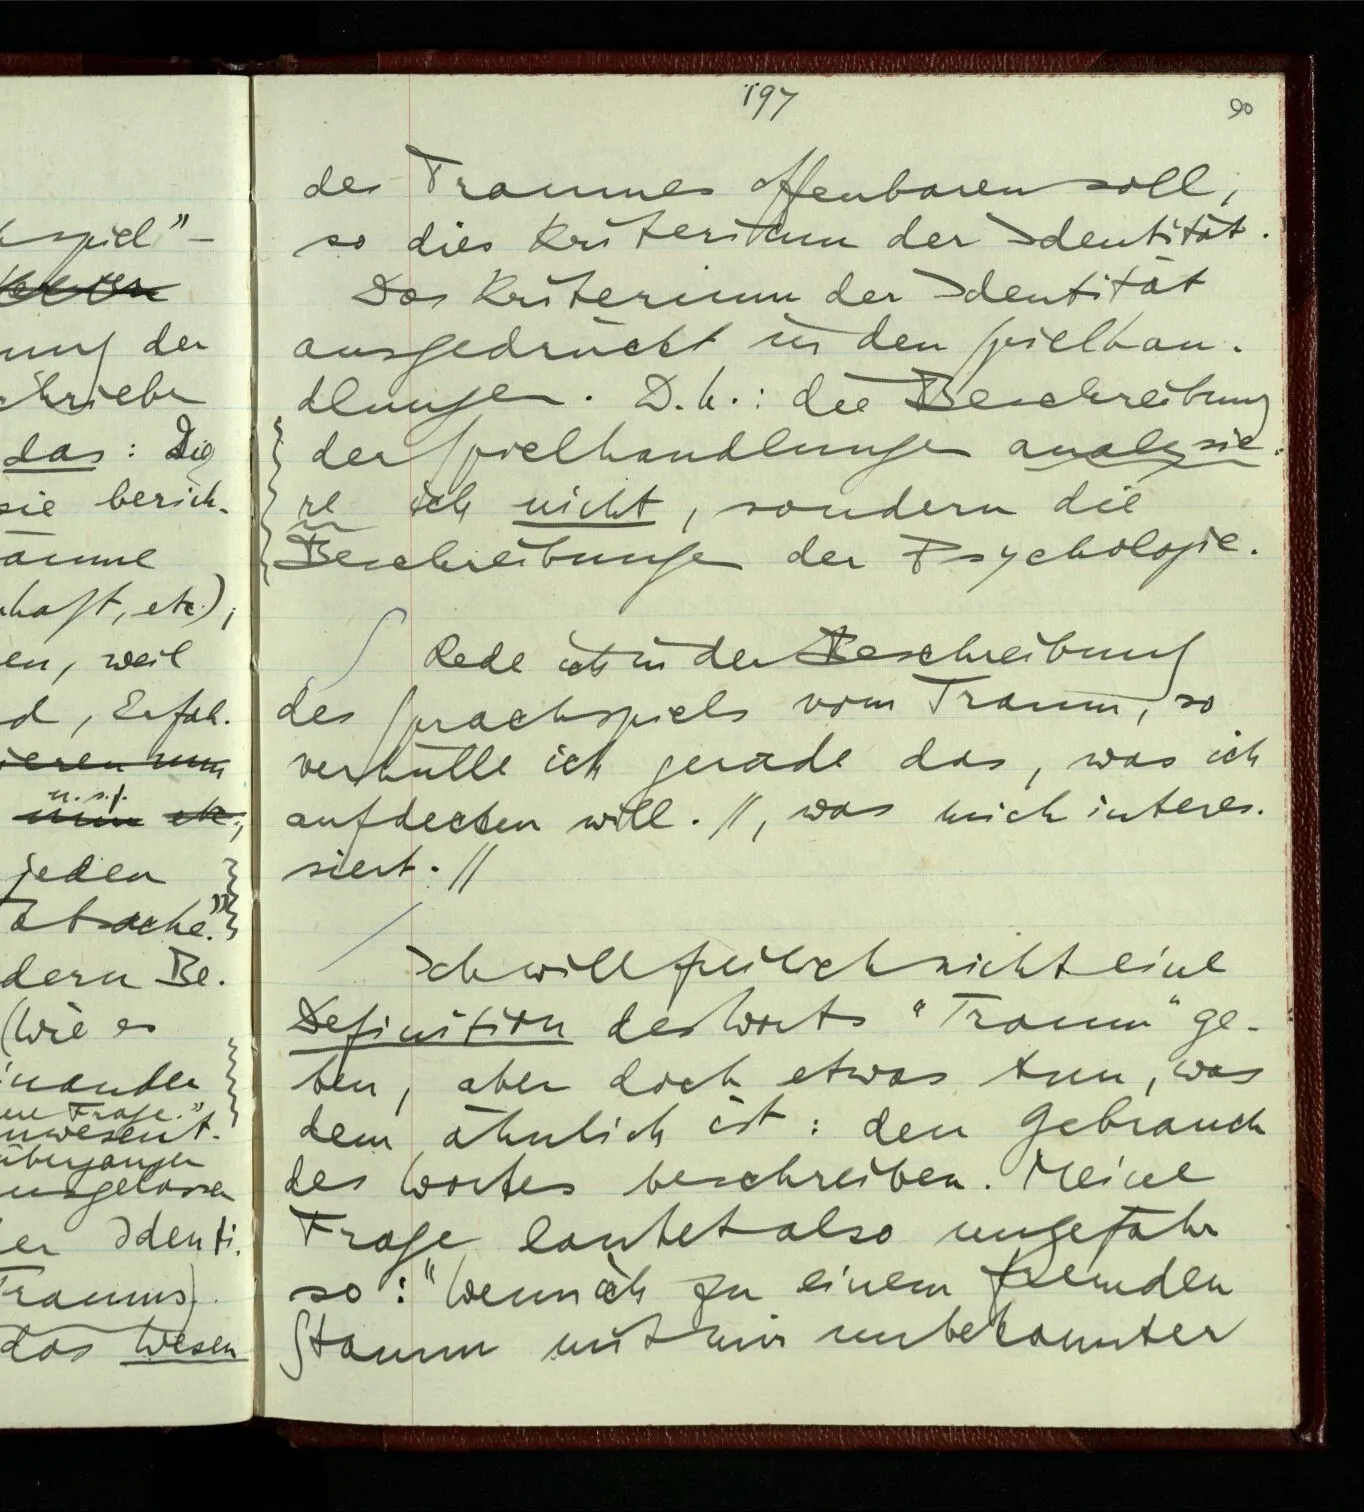 spiel" –
ung der
schriebe
das: Die
sie berich-
äume
haft, etc.),
en, weil
d, Erfah-
ieren nun
u.s.f.
etc.;
jeden
atsache."
dern Be-
(Wie es
inander
ne Frage."
unwesent-
übergangen
ausgelassen
er Identi-
Traums).
das Wesen
197
90
des Traumes offenbaren soll,
so dies Kriterium der Identität.
Das Kriterium der Identität
ausgedrückt in den Spielhan-
dlungen. D.h.: die Beschreibung
der Spielhandlungen analysie-
re ich nicht, sondern die
Beschreibungen der Psychologie.
Rede ich in der Beschreibung
des Sprachspiels vom Traum, so
verhülle ich gerade das, was ich
aufdecken will. //, was mich interes-
siert. //
Ich will freilich nicht eine
Definition des Worts "Traum" ge-
ben, aber doch etwas tun, was
dem ähnlich ist: den Gebrauch
des Wortes beschreiben. Meine
Frage lautet also ungefähr
so: "Wenn ich zu einem fremden
Stamm mit mir unbekannter